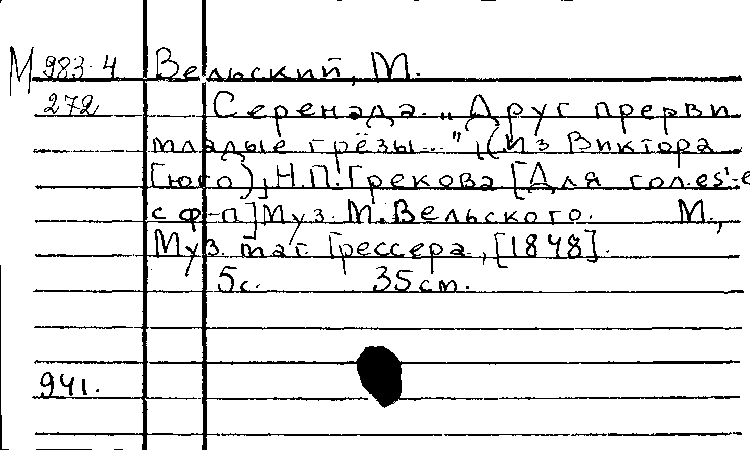 М 983-4 Вельский, М.
272 Серенада „Друг прерви
младые грёзы..." (Из Виктора
Гюго) Н.П. Грекова [Для гол. es'-e
с ф-п] Муз. М. Вельского. М.,
Муз. маг. Грессера, [1848].
5с. 35см.
941.